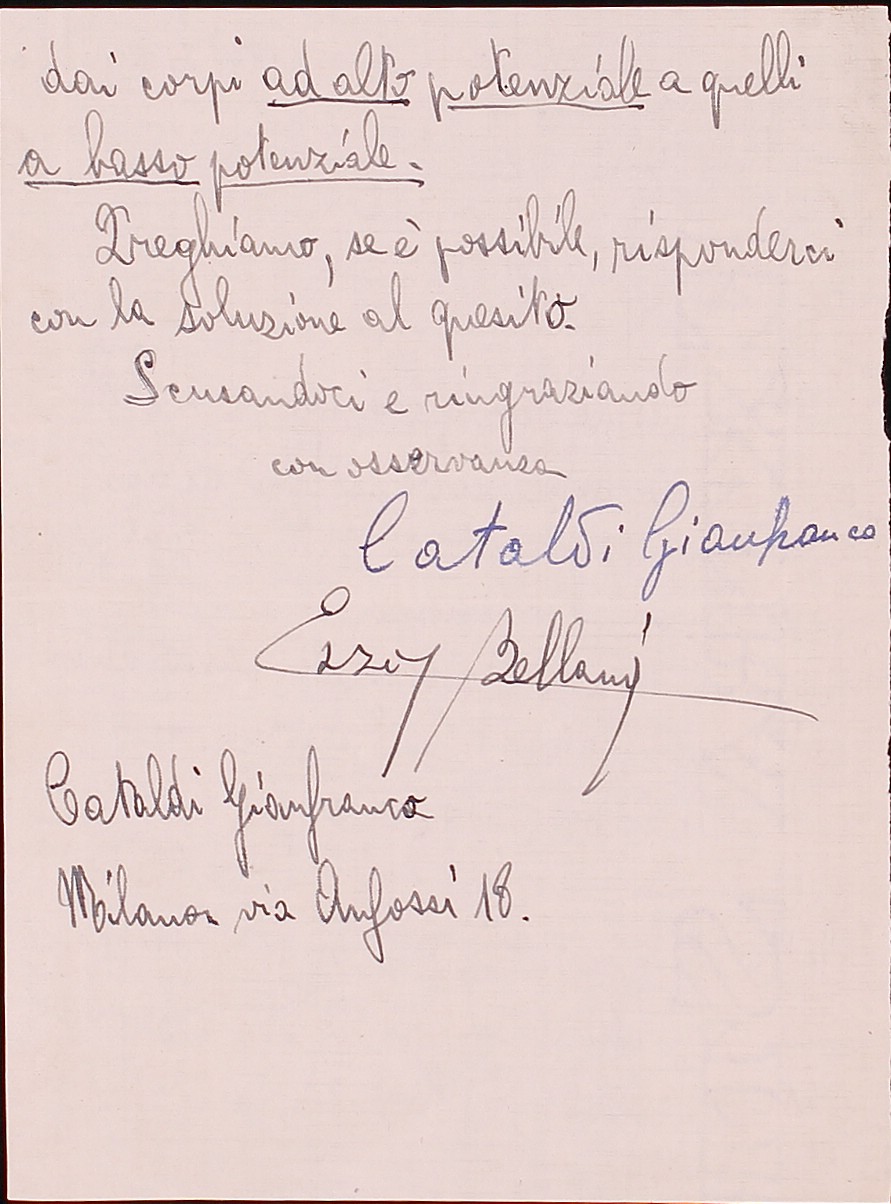 dai corpi ad alto potenziale a quelli
a basso potenziale.
Preghiamo, se è possibile, risponderci
con la soluzione al quesito.
Scusandoci e ringraziando
con osservanza
Cataldi Gianfranco
Ezio Bellani
Cataldi Gianfranco
Milano via Anfossi 18.